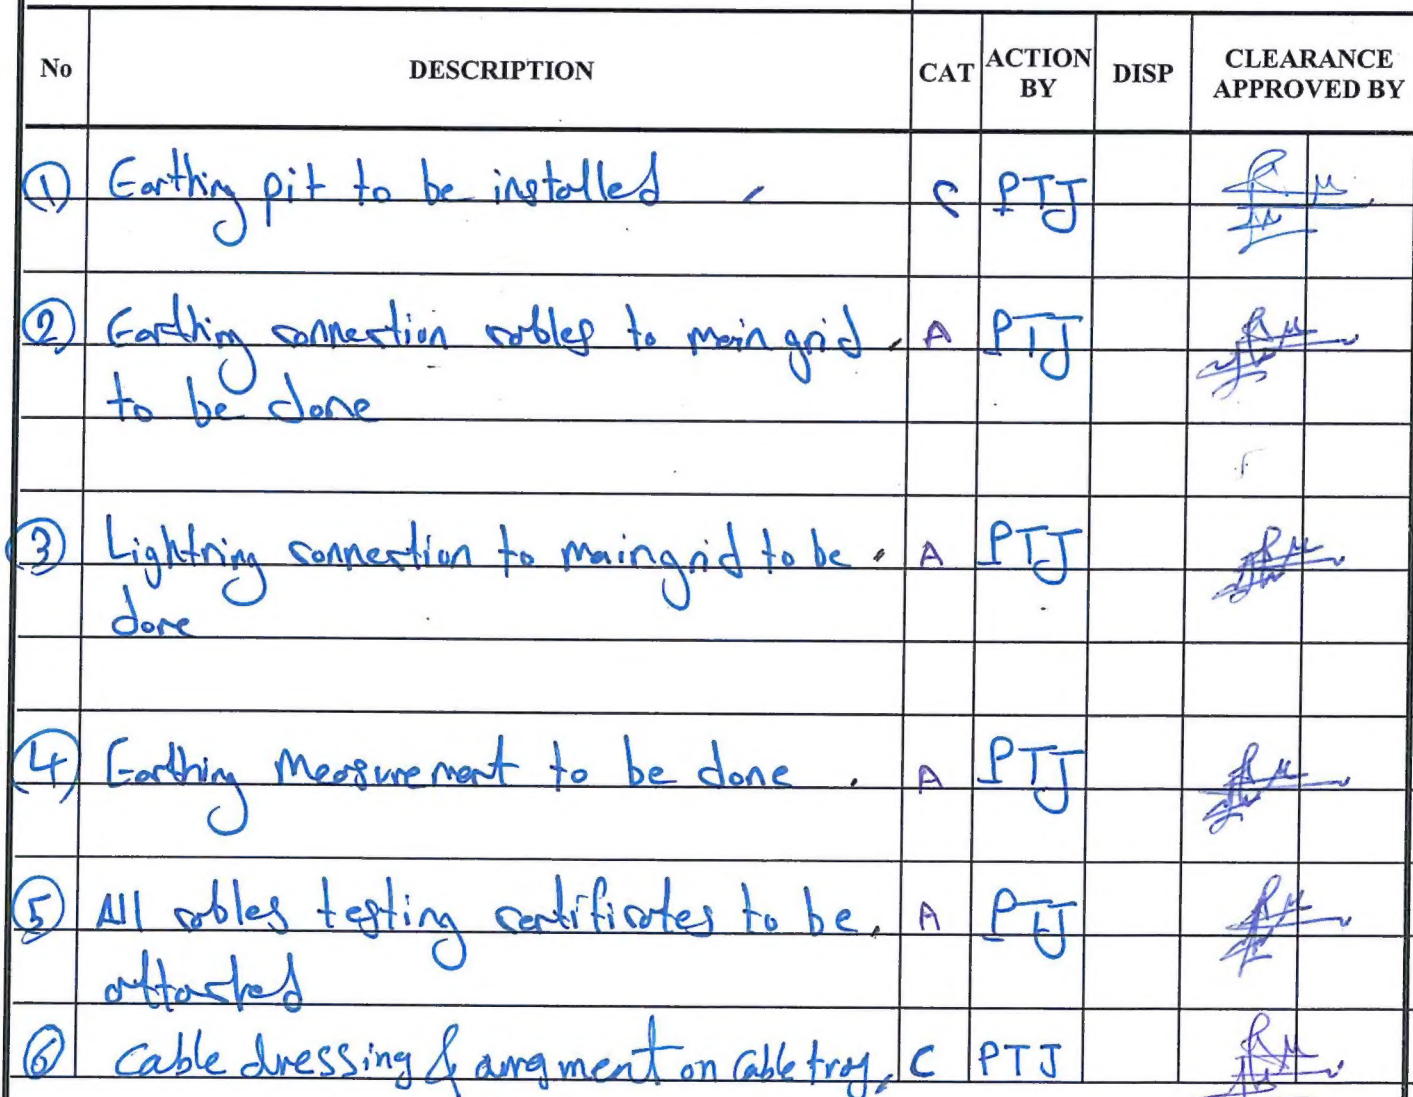 No DESCRIPTION CAT ACTION BY DISP CLEARANCE APPROVED BY
1 Earthing pit to be installed C PTJ
2 Earthing connection cables to main grid. A PTJ
to be done
3 Lightning connection to maingrid to be. A PTJ
done
4 Earthing Measurement to be done. A PTJ
5 All cables testing certificates to be. A PTJ
attached
6 Cable dressing & arrngment on Cable tray. C PTJ